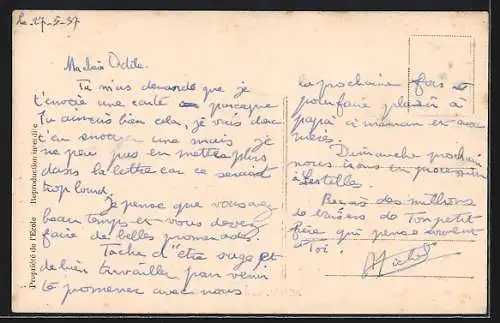 Le 27-5-37
Ma chère Odile.
Tu m'as demandé que je
t'envoie une carte parceque
Tu aimerais bien cela, je vais donc
t'en envoyer une mais je
ne peu pas en mettre plus
dans la lettre car ce serait
trop lourd.
Je pense que vous avez
beau temps et vous devez
faire de belles promenades.
Tache d'être sage et
de bien travailler pour venir
te promener avec nous
la prochaine fois et
pour faire plaisir à
papa et maman et aux
Dimanche prochain
nous irons en procession
à Lestelle.
Reçois des millions
de baisers de Ton petit
frère qui pense souvent
à Toi.
Michel
Propriété de l'Ecole Reproduction interdite